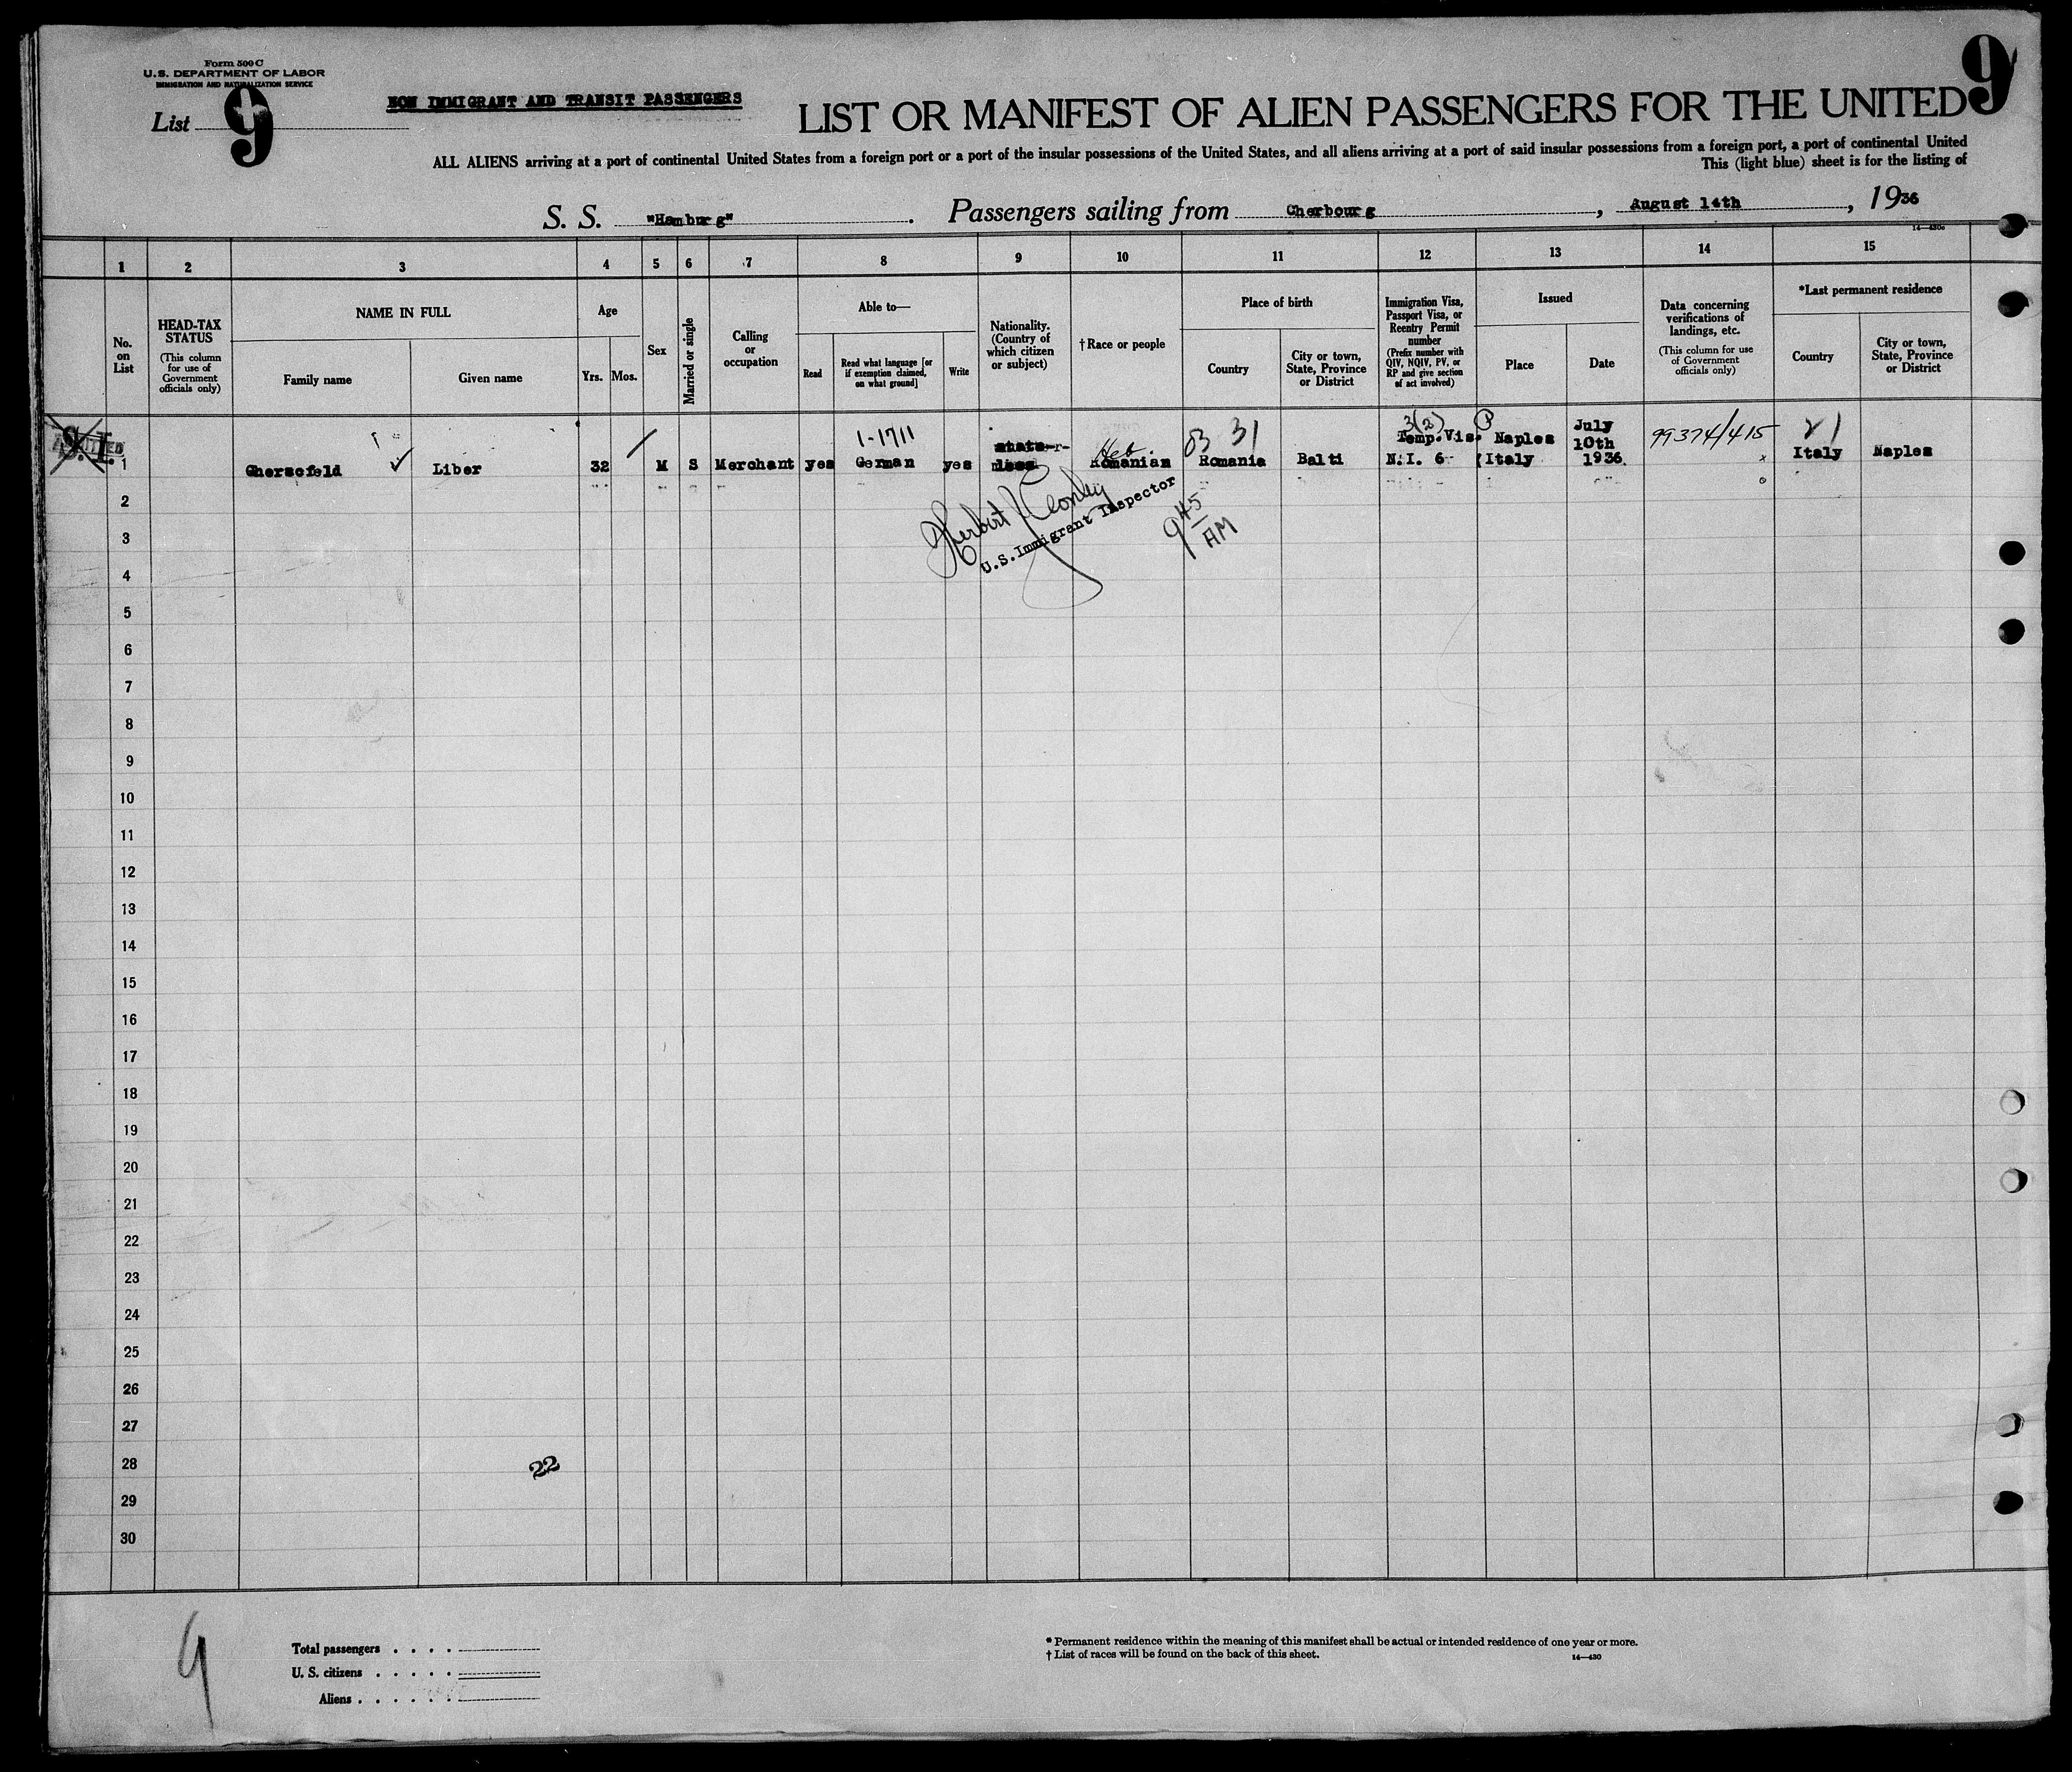 Form 500 C
U. S. DEPARTMENT OF LABOR
IMMIGRATION AND NATURALIZATION SERVICE
List 9
NON IMMIGRANT AND TRANSIT PASSENGERS
LIST OR MANIFEST OF ALIEN PASSENGERS FOR THE UNITED
9
ALL ALIENS arriving at a port of continental United States from a foreign port or a port of the insular possessions of the United States, and all aliens arriving at a port of said insular possessions from a foreign port, a port of continental United
This (light blue) sheet is for the listing of
S. S. "Hamburg". Passengers sailing from Cherbourg, August 14th, 1936
14—430c
1 2 3 4 5 6 7 8 9 10 11 12 13 14 15
No. on List
HEAD-TAX STATUS
(This column for use of Government officials only)
NAME IN FULL
Family name
Given name
Age
Yrs. Mos.
Sex
Married or single
Calling or occupation
Able to—
Read
Read what language [or if exemption claimed, on what ground]
Write
Nationality. (Country of which citizen or subject)
†Race or people
Place of birth
Country
City or town, State, Province or District
Immigration Visa, Passport Visa, or Reentry Permit number
(Prefix number with QIV, NQIV, PV, or RP and give section of act involved)
Issued
Place
Date
Data concerning verifications of landings, etc.
(This column for use of Government officials only)
*Last permanent residence
Country
City or town, State, Province or District
S.I.
1-1711
Heb.
31
3(2)
P
99374/415
1 Ghersofeld ✓ Liber 32 M S Merchant yes German yes state-r-less Romanian Romania Balti Temp.Vis. N.I. 6 Naples Italy July 10th 1936. Italy Naples
Herbert
U.S.Immigrant Inspector
9 45 AM
2
3
4
5
6
7
8
9
10
11
12
13
14
15
16
17
18
19
20
21
22
23
24
25
26
27
28
22
29
30
9
Total passengers . . . .
U. S. citizens . . . . .
Aliens . . . . . .
* Permanent residence within the meaning of this manifest shall be actual or intended residence of one year or more.
† List of races will be found on the back of this sheet.
14—430